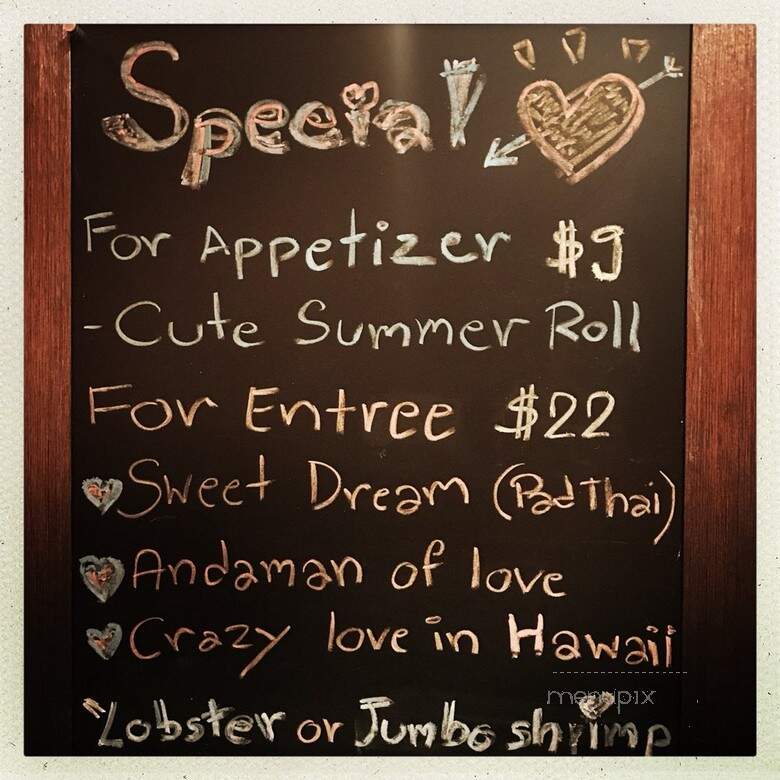 Special
For Appetizer $9
-Cute Summer Roll
For Entree $22
Sweet Dream (Pad Thai)
Andaman of love
Crazy love in Hawaii
menupix
"Lobster or Jumbo shrimp